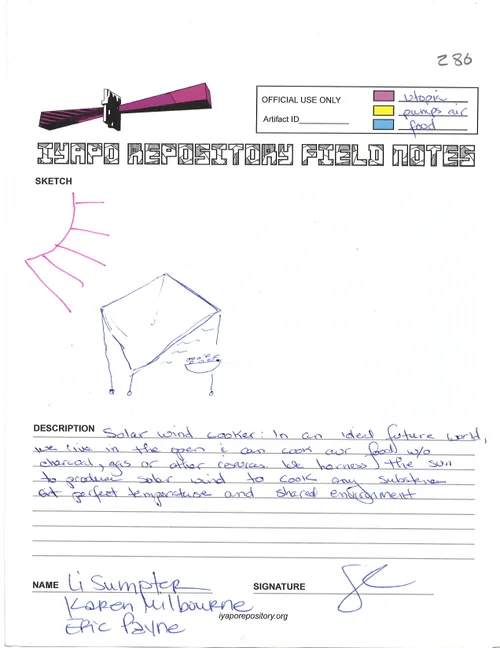 286
OFFICIAL USE ONLY
utopic
pumps air
Artifact ID
food
IYAPO REPOSITORY FIELD NOTES
SKETCH
DESCRIPTION Solar wind cooker: In an ideal future world,
we live in the open & can cook our food w/o
charcoal, gas or other resources. We harness the sun
to produce solar wind to cook any substance
at perfect temperature and shared environment
NAME Li Sumpter
SIGNATURE
Karen Milbourne
iyaporepository.org
Eric Payne